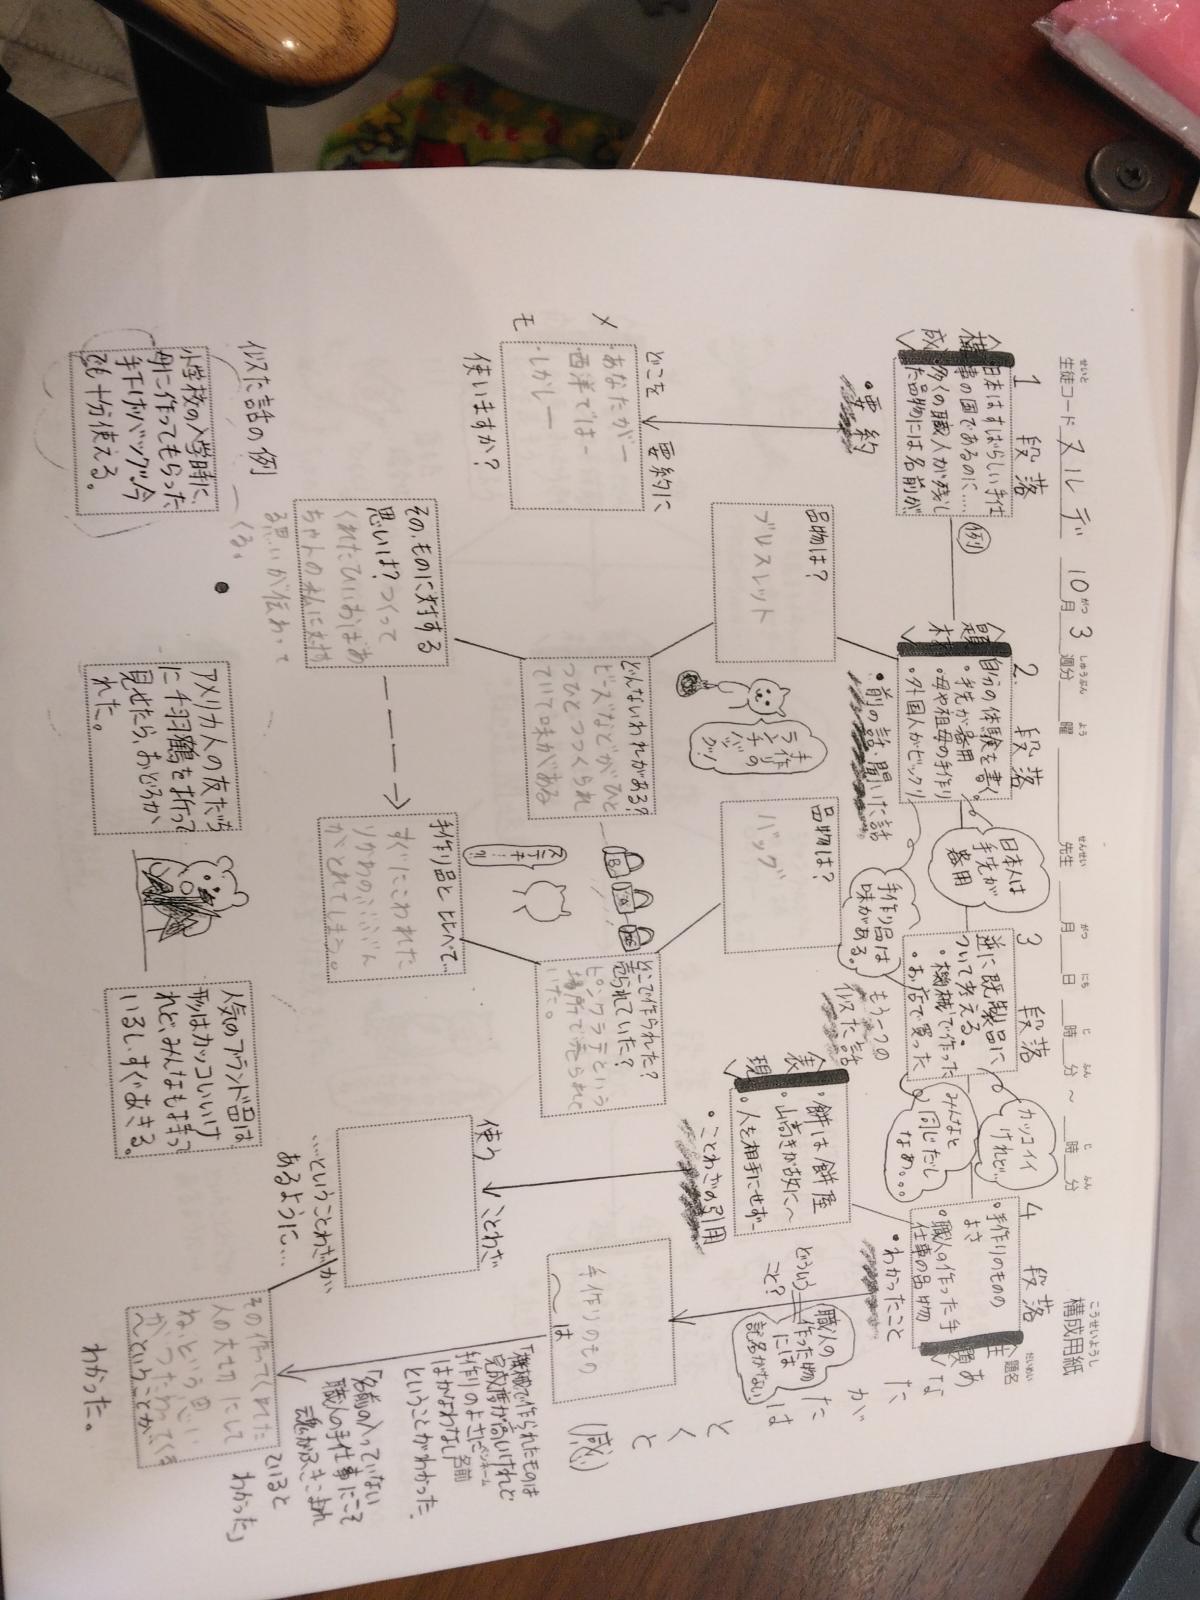 構成用紙
こうせいようし
生徒コード ヌルデ 10月3週分 曜 先生 月 日 時 分 ～ 時 分
せいと がつ しゅうぶん よう せんせい がつ にち じ ふん じ ふん
題名
だいめい
1 段落
構成
・日本はすばらしい手仕
事の国であるのに…
・多くの職人が残し
た品物には名前が
・要約
例
2. 段落
題材
自分の体験を書く。
・手先が器用
・母や祖母の手作り
・外国人がビックリ
・前の話・聞いた話
日本人は
手先が
器用
手作り品は
味がある。
3 段落
逆に既製品に
ついて考える。
・機械で作った
・お店で買った
もう一つの
似た話
カッコイイ
けれど…
みんなと
同じだし
なあ。。。
4 段落
・手作りのものの
よさ
・職人の作った手
仕事の品物
・わかったこと
主題
あ
な
た
が
た
は
どういう
こと?
職人の
作った物
には
記名がない!
表現
・餅は餅屋
・山高きが故に〜
・人を相手にせず―
・ことわざの引用
どこを
要約に
使いますか?
メモ
・あなたが―
・西洋では―
・しかし―
品物は?
ブレスレット
手作り
ランチ
バッグの
どんないわれがある?
ビーズなどがひと
つひとつつくられ
ていて味がある
その、ものに対する
思いは? つくって
くれたひいおばあ
ちゃんの私に対す
る思いが伝わって
くる。
品物は?
バッグ
どこで作られた?
売られていた?
ステキ…?!
手作り品と比べて…
すぐにこわれた
がとれてしまう。
使う
ことわざ
…ということわざが
あるように…
手作りのもの
〜は
(感)
と
く
と
「機械で作られたものは
完成度が高いけれど
手作りのよさに
はかなわない」
ということがわかった.
「名前の入っていない
職人の手仕事にこそ
魂がふきこまれ
ていると
わかった」
その作ってくれた
人の大切にして
ねという思い
がつたわってくる
んということが、
わかった。
似た話の例
小学校の入学時に、
母に作ってもらった
手下げバッグ。今
でも十分使える。
アメリカ人の友だち
に千羽鶴を折って
見せたら、おどろか
れた。
人気のブランド品は
形はカッコいいけ
れど、みんなも持って
いるし、すぐあきる。